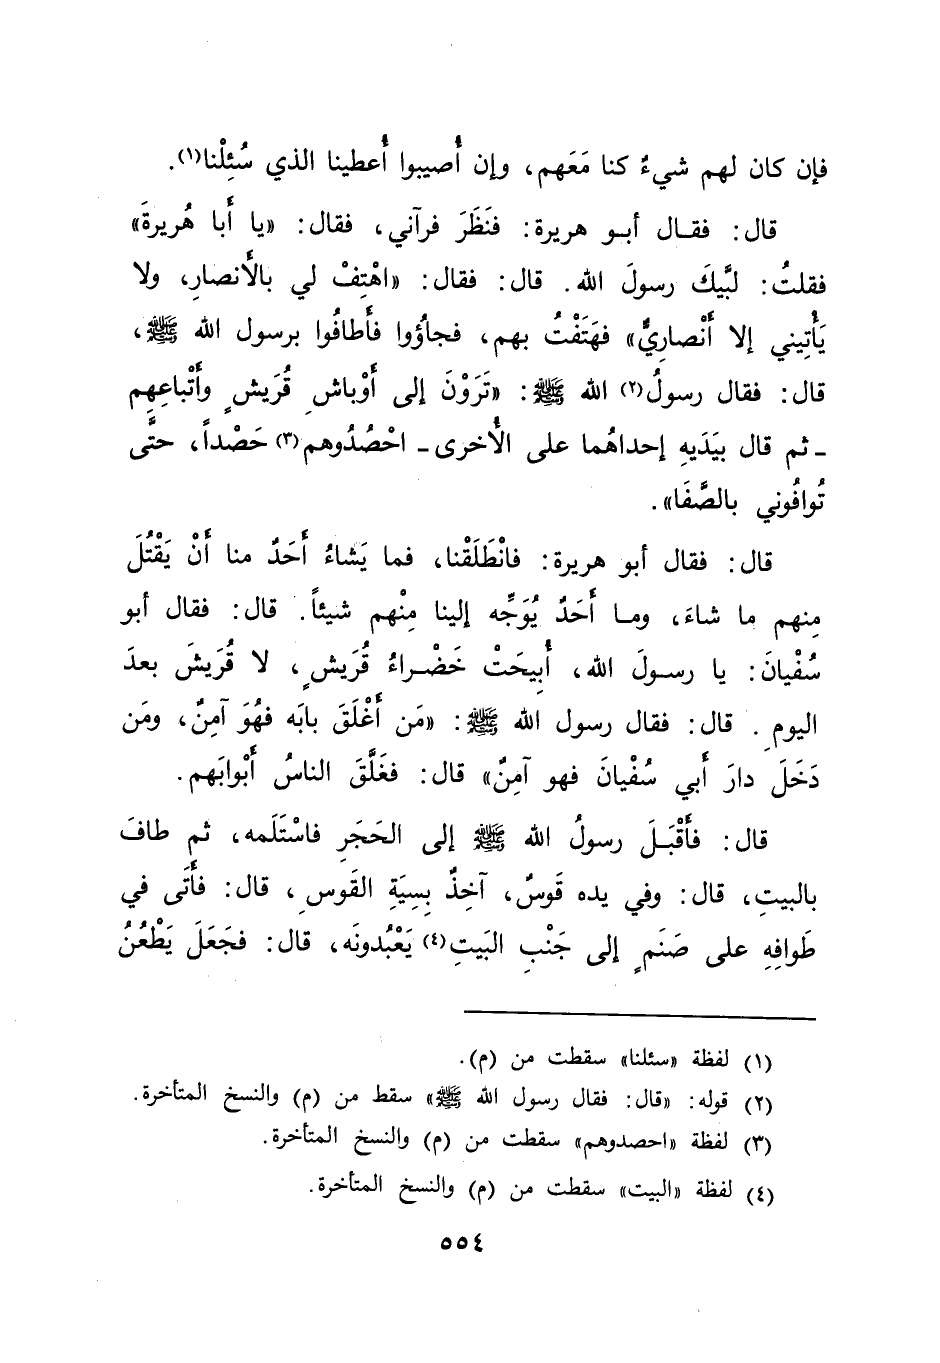 فإن كان لهم شيءٌ كنا مَعَهم، وإن أُصيبوا أُعطينا الذي سُئِلْنا(١).
قال: فقـال أبـو هريرة: فنَظَرَ فرآني، فقال: «يا أَبا هُريرةَ»
فقلتُ: لبَّيكَ رسولَ الله. قال: فقال: «اهْتِفْ لي بالأَنصارِ، ولا
يَأْتِيني إلا أَنْصارِيٌّ» فهَتَفْتُ بهم، فجاؤُوا فأَطافُوا برسول الله ﷺ،
قال: فقال رسولُ(٢) الله ﷺ: «تَرَوْنَ إلى أَوْباشِ قُرَيشٍ وأَتْباعِهِم
ـ ثم قال بيَدَيهِ إحداهُما على الأُخرى ـ احْصُدُوهم(٣) حَصْداً، حتَّى
تُوافُوني بالصَّفَا».
قال: فقال أبو هريرة: فانْطَلَقْنا، فما يَشاءُ أَحَدٌ منا أَنْ يَقْتُلَ
مِنهم ما شاءَ، ومـا أَحَدٌ يُوَجِّه إلينا مِنْهم شيئاً. قال: فقال أبو
سُفْيانَ: يا رسـولَ الله، أُبيحَتْ خَضْـراءُ قُرَيشٍ، لا قُرَيشَ بعدَ
اليومِ. قال: فقال رسول الله ﷺ: «مَن أَغْلَقَ بابَه فهُوَ آمِنٌ، ومَن
دَخَلَ دارَ أَبي سُفْيانَ فهو آمِنٌ» قال: فغَلَّقَ الناسُ أَبْوابَهم.
قال: فأَقْبَـلَ رسولُ الله ﷺ إلى الحَجَرِ فاسْتَلَمه، ثم طافَ
بالبيتِ، قال: وفي يده قَوسٌ، آخِذٌ بِسِيَةِ القَوسِ، قال: فأَتَى في
طَوافِهِ على صَنَمٍ إلى جَنْبِ البَيتِ(٤) يَعْبُدونَه، قال: فجَعَلَ يَطْعُنُ
(١) لفظة «سئلنا» سقطت من (م).
(٢) قوله: «قال: فقال رسول الله ﷺ» سقط من (م) والنسخ المتأخرة.
(٣) لفظة «احصدوهم» سقطت من (م) والنسخ المتأخرة.
(٤) لفظة «البيت» سقطت من (م) والنسخ المتأخرة.
٥٥٤